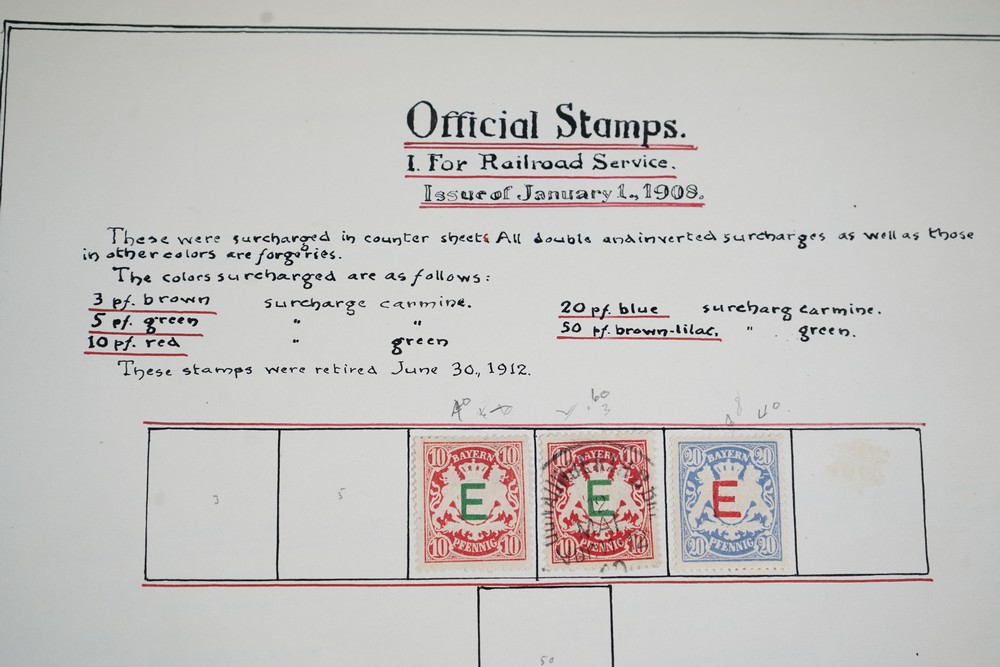 Official Stamps.
I. For Railroad Service.
Issue of January 1., 1908.
These were surcharged in counter sheets. All double and inverted surcharges as well as those
in other colors are forgeries.
The colors surcharged are as follows:
3 pf. brown surcharge carmine.
5 pf. green " "
10 pf. red " green
20 pf. blue surcharg carmine.
50 pf. brown-lilac, " green.
These stamps were retired June 30., 1912.
3
5
10 BAYERN 10
E
10 PFENNIG 10
10 BAYERN 10
E
MAI
10 PFENNIG 10
20 BAYERN 20
E
20 PFENNIG 20
50